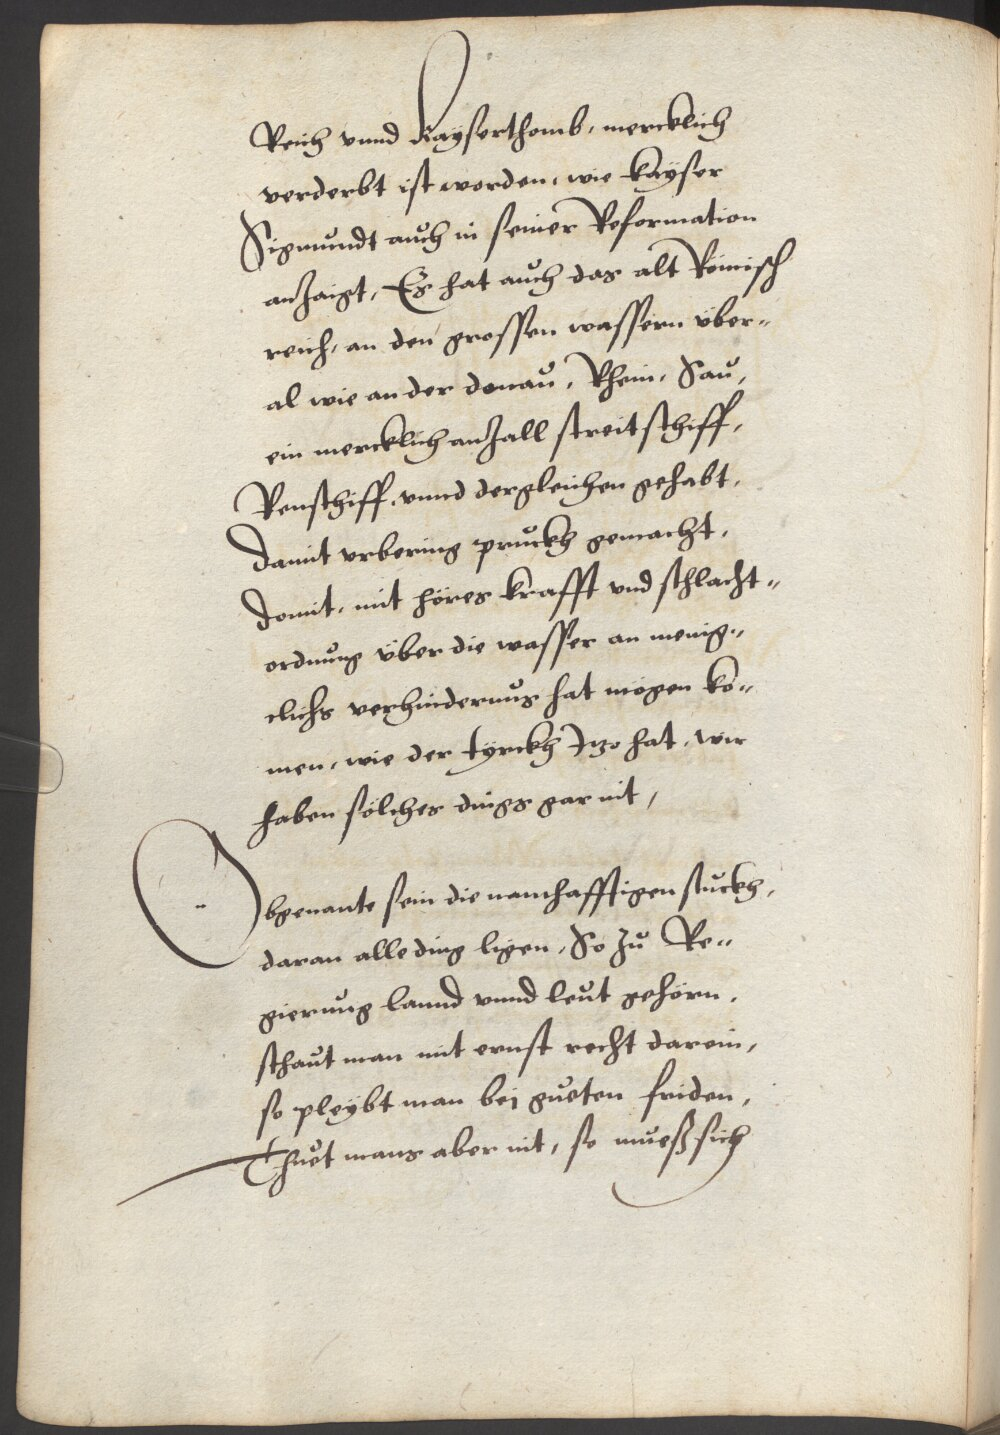 Reich vnnd Kayserthomb, mercklich
verderbt ist worden, wie kayser
Sigmundt auch in seiner Reformation
anzaigt, Es hat auch das alt Römisch
reich, an den grossen wassern über=
al wie an der donau, Rhein, Sau,
ein mercklich anzall streitschiff,
Renschiff, vnnd dergleichen gehabt,
damit vrbering pruckh gemacht,
domit, mit höres krafft vnd schlacht=
ordnung über die wasser an menig=
clichs verhindernus hat mögen ko=
men, wie der türckh itzo hat, wir
haben solches dings gar nit,
Obgenante sein die namhafftigen stuckh,
daran alle ding ligen, So zu Re=
gierung lannd vnnd leut gehörn,
schaut man mit ernst recht darein,
so pleybt man bei gueten friden,
Thuet mans aber nit, so mueß sich